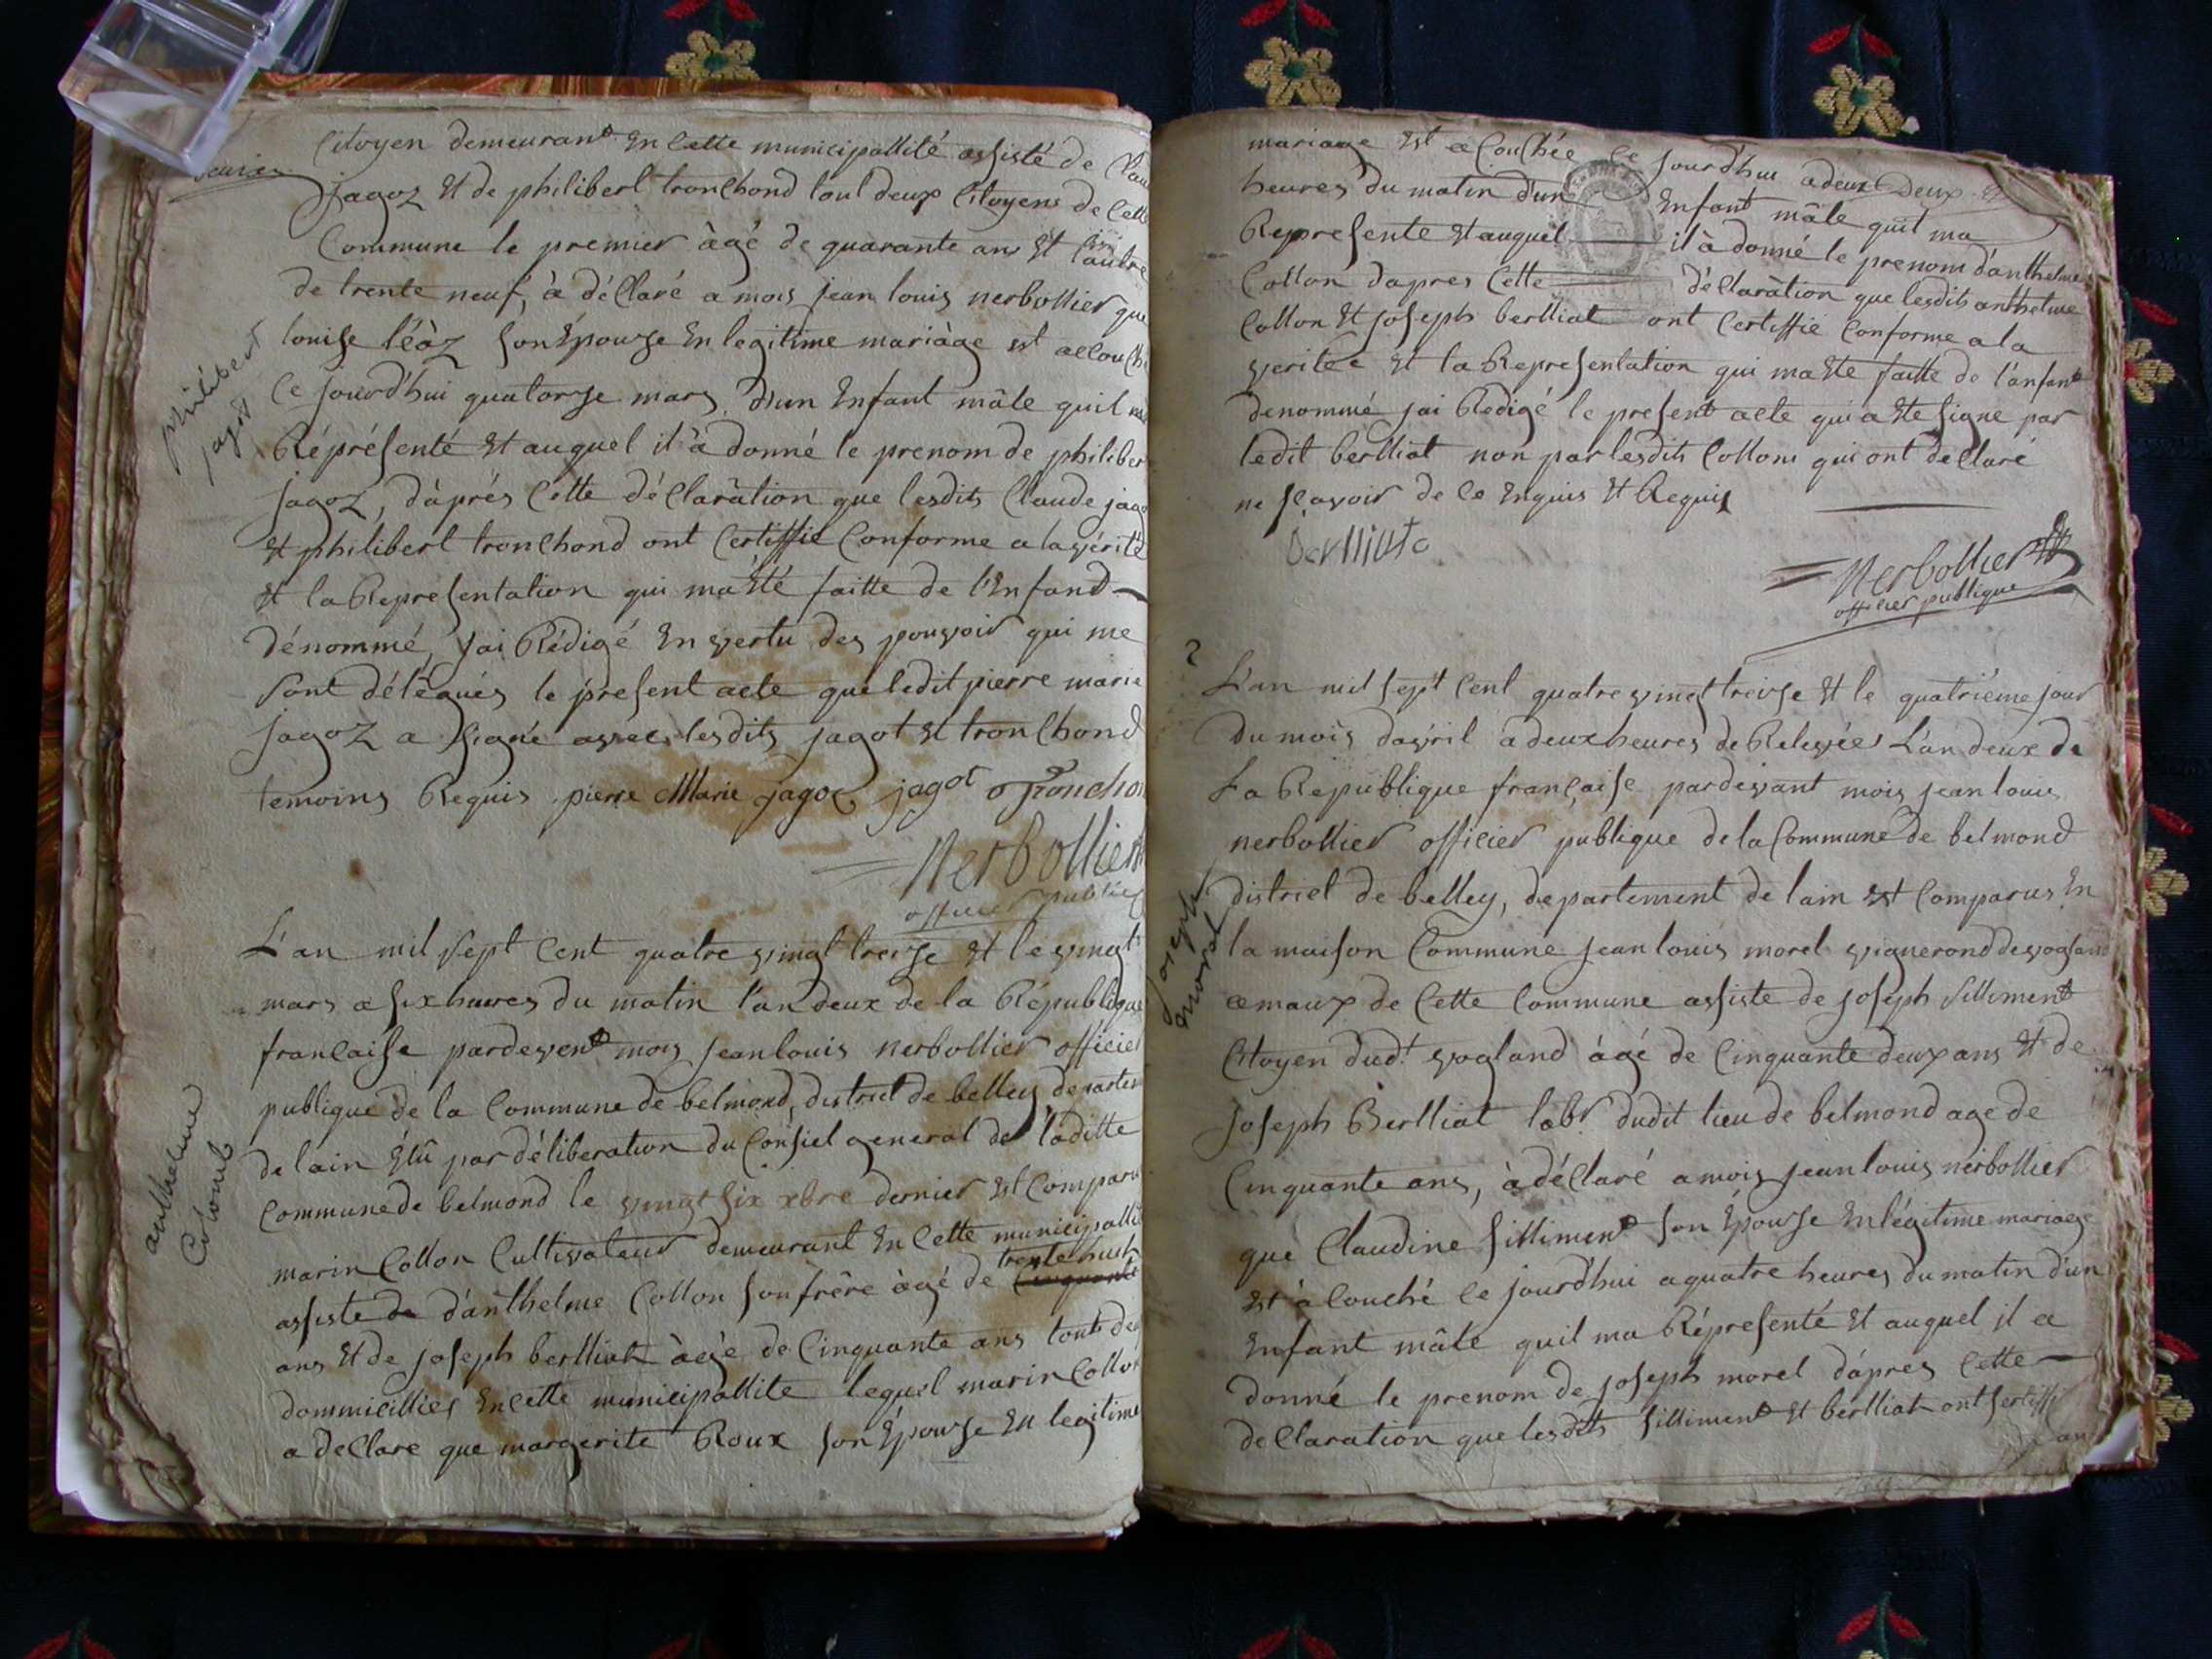 Citoyen demeurant En Cette municipallité assisté de Clau
jagoz Et de philibert tronchond tout deux Citoyens de Cette
Commune le premier àgé de quarante ans Et l'autre
de trente neuf, à déClaré a mois jean louis nerbollier que
louise léàz son Épouse En legitime mariàge est accouché
Ce jourd'hui quatorze mars d'un Enfant mâle quil ma
Réprésenté Et auquel il à donné le prenom de philiber
jagoz, dàprés Cette déClaràtion que lesdits Claude jago
Et philibert tronChond ont Certiffié Conforme a la vérité
Et la Representation qui ma Eté faitte de l'Enfand
dénommé, jai Rédigé En vertu des pouvoir qui me
sont délégués le present acte que ledit pierre marie
jagoz a signé avec lesdits jagot Et tronChond
temoins Requis pierre Marie jagoz jagot Tronchon
Nerbollier
officier public
philibert
jagot
L'an mil sept Cent quatre vingt treize Et le vingt
mars a six heures du matin l'an deux de la République
françaisse pardevent mois jean louis nerbollier officier
publique de la Commune de belmond, district de belley departem
de lain Élû par déliberation du Consiel general de laditte
Commune de belmond le vingt six xbre dernier Est Comparu
marin Collon Cultivateur demeurant En Cette municipallité
trente huit
assiste de d'anthelme Collon son frère àgé de Cinquante
ans Et de joseph berlliat àgé de Cinquante ans touts deu
dommicilliés En Cette municipallite lequel marin Collon
a deClare que margerite Roux son Épouse En legitime
anthelme
Colomb
mariage Est acouchée Ce jourd'hui a deux deux
heures du matin d'un Enfant mâle quil ma
Represente Et auquel il à donné le prenom d'anthelme
Collon dapres Cette déClaràtion que lesdits anthelme
Collon Et joseph berlliat ont Certiffié Conforme a la
veritée Et la Representation qui ma Eté faitte de l'anfant
denommé jai Redigé le present acte qui a Ete signe par
ledit berlliat non par lesdits Collons qui ont deClaré
ne sçavoir de Ce Enquis Et Requis
berlliate
Nerbollier
officier publique
2
L'an mil sept Cent quatre vingt treise Et le quatriéme jour
du mois davril a deux heures de Relevée L'an deux de
La République françaisse pardevant mois jean louis
nerbollier officier publique de la Commune de belmond
district de belley, departement de lain Est Comparus En
la maison Commune jean louis morel vignerond de vogland
amaux de Cette Commune assiste de joseph silliment
Citoyen dudt vogland àgé de Cinquante deux ans Et de
joseph Berlliat labr dudit lieu de belmond age de
Cinquante ans, à déClaré a mois jean louis nerbollier
que Claudine silliment son Épouse En légitime mariage
est àCouché Ce jourd'hui a quatre heures du matin d'un
Enfant mâle quil ma Répresenté Et auquel il a
donné le prenom de joseph morel dápres Cette
deClaration que lesdits silliment Et berlliat ont Certiffi
joseph
morel